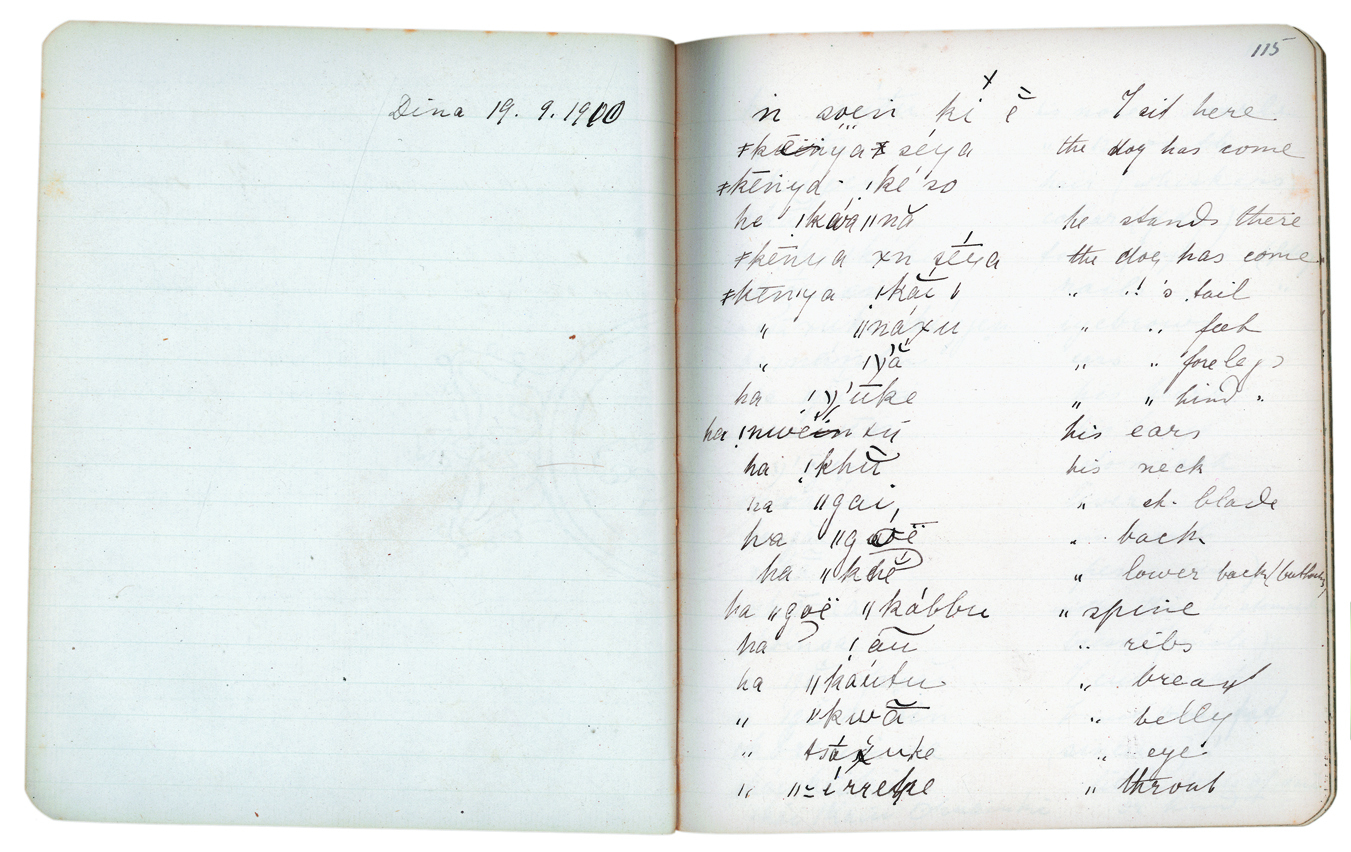 Dina 19. 9. 1900
115
n soen ki ĕ I sit here
ǂkenya x séya the dog has come
ǂkēnya ǃké so
he ǀkwa ǁnă he stands there
ǂkēnya xn sēya the dog has come
ǂkēnya ǃkăi „ „ 's tail
„ ǁnáxu „ „ feet
„ „ „ forelegs
ha „ „ hind „
ha his ears
ha ǃkhū his neck
ha ǁgai „ sh. blade
ha „ back
ha „ lower back (buttocks)
ha ǁgoë ǁkábbu „ spine
ha ǃāu „ ribs
ha ǁkáutu „ breast
„ ǁkwā „ belly
„ „ eye
„ „ throat